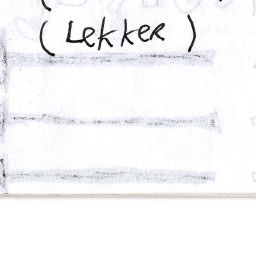 ( LekkeR )